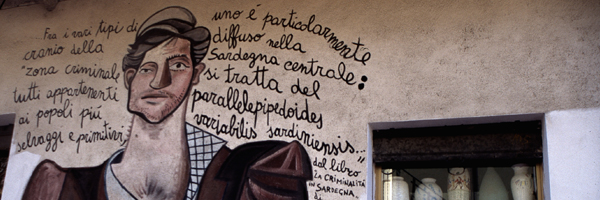 Fra i vari tipi di
cranio della
"zona criminale
tutti appartenenti
ai popoli più
selvaggi e primitivi
uno é particolarmente
diffuso nella
Sardegna centrale:
si tratta del
parallelepipedoides
variabilis sardiniensis...
dal libro
LA CRIMINALITÀ
IN SARDEGNA